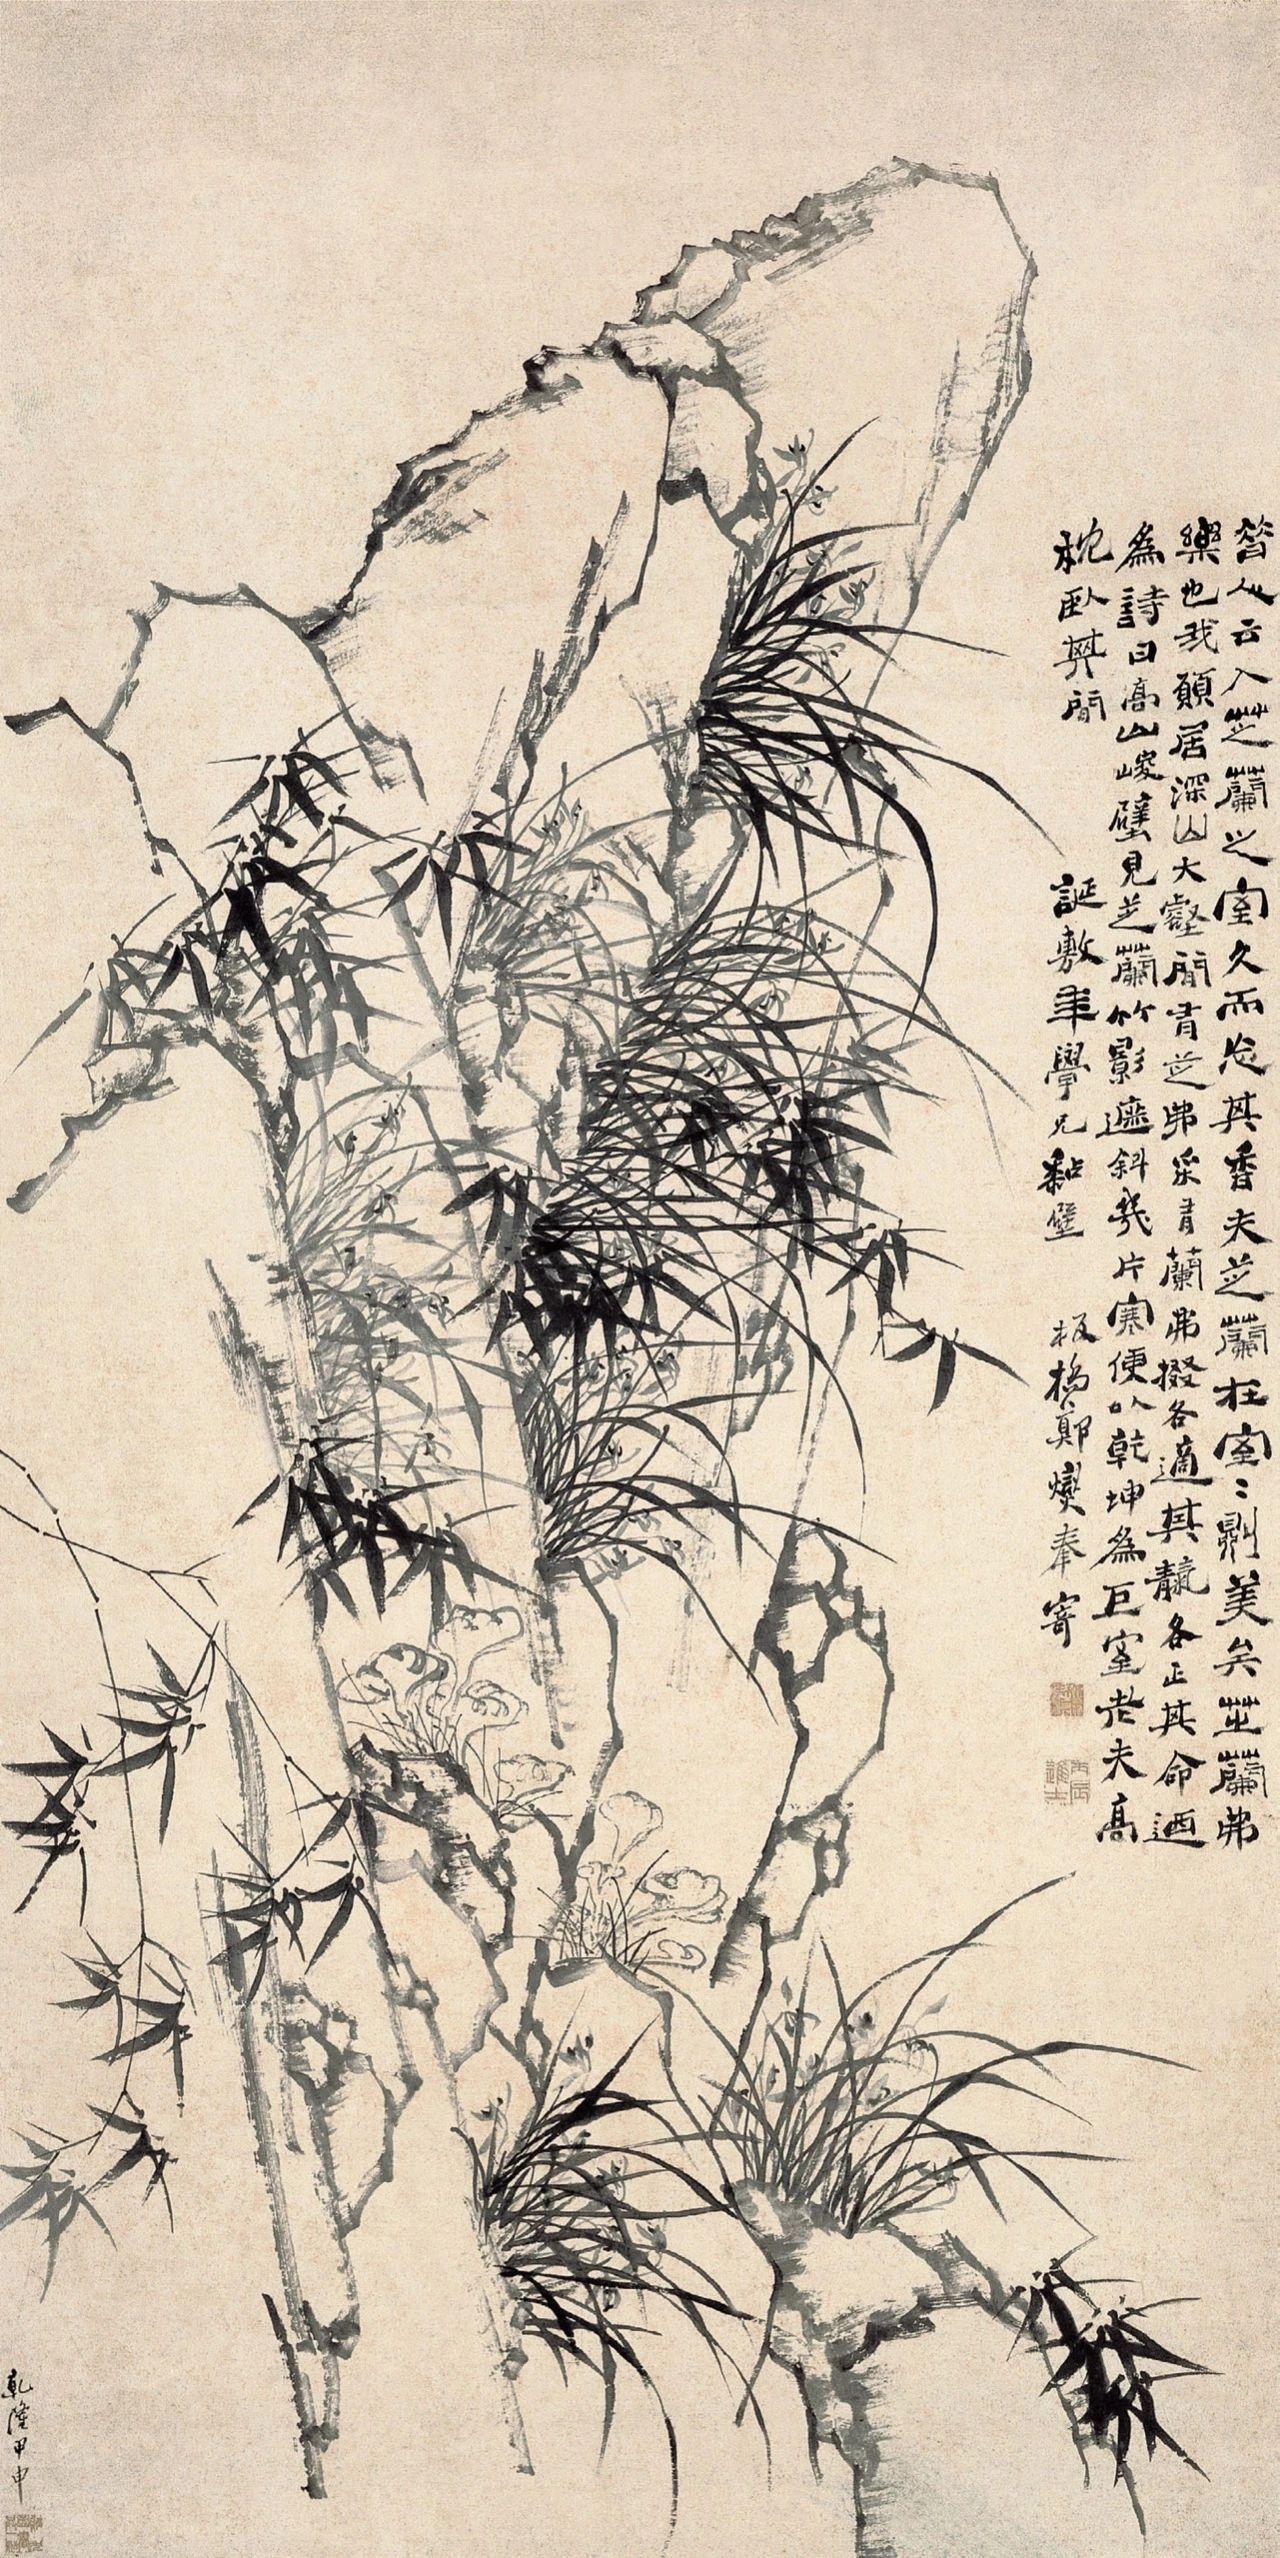 昔人云入芝蘭之室久而忘其香夫芝蘭在室室則美矣芝蘭弗
樂也我願居深山大壑間有芝弗采有蘭弗掇各適其其命迺
為詩曰高山峻壁見芝蘭竹影遮斜幾片寒便以乾坤為巨室老夫高
枕臥其間
誕敷年學兄黏壁
板橋鄭燮奉寄
丙辰進士
乾隆甲申